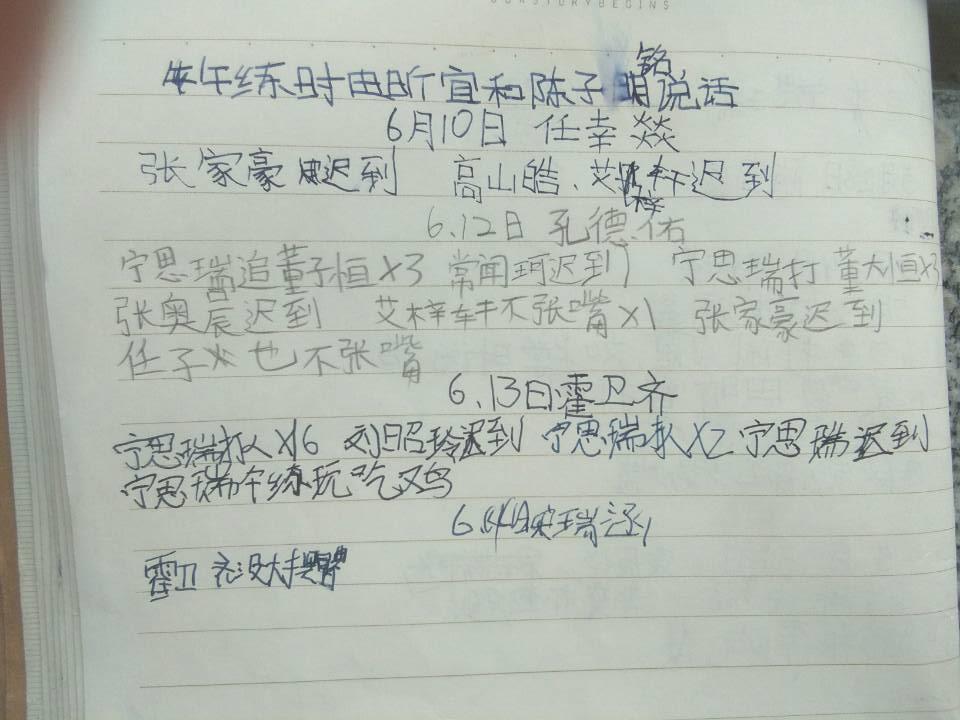 OURSTORYBEGINS
午练时由昕宜和陈子铭说话
6月10日 任幸燚
张家豪迟到 高山皓、艾梓轩迟到
6.12日 孔德佑
宁思瑞追董子恒×3 常闻珂迟到 宁思瑞打董大恒×3
张奥宸迟到 艾梓轩不张嘴×1 张家豪迟到
任子 也不张嘴
6.13日霍卫齐
宁思瑞打人×16 刘昭玲迟到 宁思瑞打人×2 宁思瑞迟到
宁思瑞午练玩
6.14日
霍卫 没大